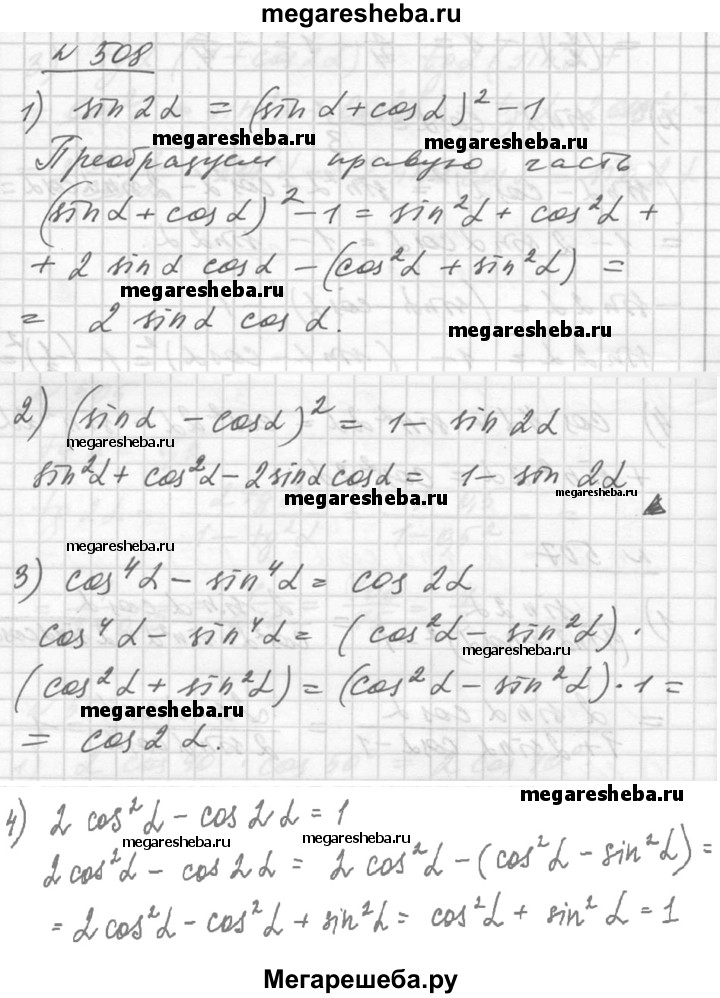 megaresheba.ru
№ 508
1) sin 2α = (sin α + cos α)² - 1
megaresheba.ru
megaresheba.ru
Преобразуем правую часть
(sin α + cos α)² - 1 = sin²α + cos²α +
+ 2 sin α cos α - (cos²α + sin²α) =
megaresheba.ru
= 2 sin α cos α.
megaresheba.ru
2) (sin α - cos α)² = 1 - sin 2α
megaresheba.ru
sin²α + cos²α - 2 sin α cos α = 1 - sin 2α
megaresheba.ru
megaresheba.ru
megaresheba.ru
3) cos⁴α - sin⁴α = cos 2α
cos⁴α - sin⁴α = (cos²α - sin²α) ·
megaresheba.ru
(cos²α + sin²α) = (cos²α - sin²α) · 1 =
megaresheba.ru
= cos 2α.
megaresheba.ru
4) 2 cos²α - cos 2α = 1
megaresheba.ru
megaresheba.ru
2 cos²α - cos 2α = 2 cos²α - (cos²α - sin²α) =
= 2 cos²α - cos²α + sin²α = cos²α + sin²α = 1
Мегарешеба.ру